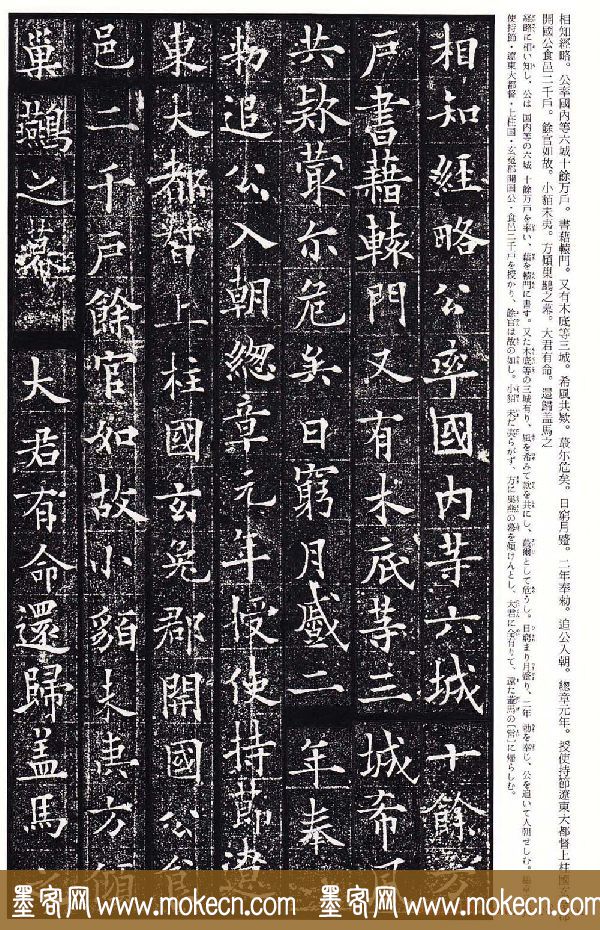 相知經略。公率國內等六城十餘万戶。書藉轅門。又有木底等三城。希風共欵。蕞尓危矣。日窮月蹙。二年奉勅。追公入朝。緫章元年。授使持節遼東大都督上柱國玄
開國公食邑二千戶。餘官如故。小貊未夷。方傾巢鷰之幕。大君有命。還歸盖馬之
經略に相い知し、公は国内等の六城十餘万戸を率い、藉を轅門に書す。又た木底等の三城有り、風を希みて欵を共にし、蕞爾として危うし。日窮まり月蹙り、二年勅を奉じ、公を追いて入朝せしむ。
使持節・遼東大都督・上柱国・玄菟郡開国公・食邑二千戸を授かり、餘官は故の如し。小貊未だ夷らがず、方に巢燕の幕を傾けんとし、大君に命有りて、還た蓋馬の〔營〕に帰らしむ。
相知經略公率國內等六城十餘万
戶書藉轅門又有木底等三城希風
共欵蕞尓危矣日窮月蹙二年奉
勑追公入朝緫章元年授使持節遼
東大都督上柱國玄兔郡開國公食
邑二千戶餘官如故小貊未夷方傾
巢鷰之幕大君有命還歸盖馬
墨客网 www.mokecn.com 墨客网 www.mokecn.com